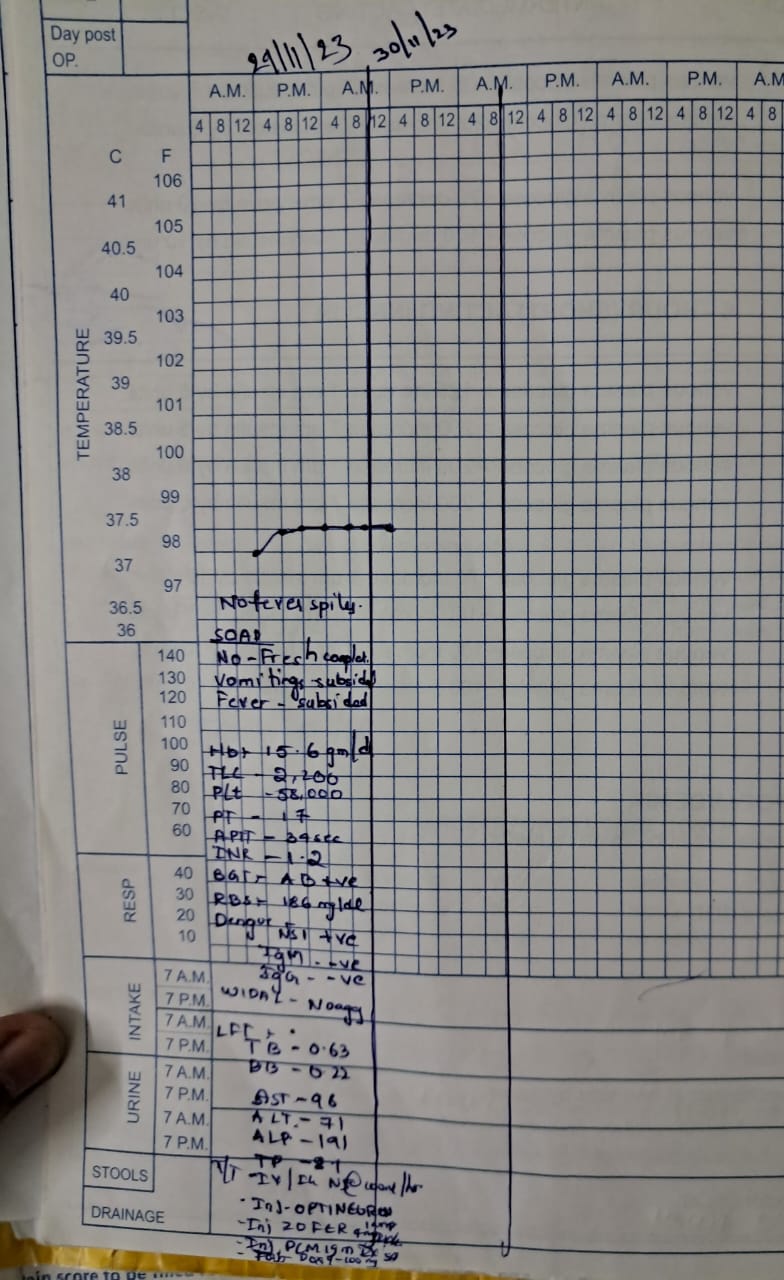 Day post
OP.
29/11/23 30/11/23
A.M. P.M. A.M. P.M. A.M. P.M. A.M. P.M. A.M
4 8 12 4 8 12 4 8 12 4 8 12 4 8 12 4 8 12 4 8 12 4 8 12 4 8
TEMPERATURE
C F
106
41
105
40.5
104
40
103
39.5
102
39
101
38.5
100
38
99
37.5
98
37
97
36.5
36
No fever
SOAP
No - Fresh
Vomitings - subsided
Fever - subsided
PULSE
140
130
120
110
100
90
80
70
60
Hb 15.6 gm/d
TLC - 2,200
Plt - 58,000
PT - 17
APTT - 34 sec
INR - 1.2
RESP
40
30
20
10
AB +ve
RBS 186 mg/dl
Dengue
NS1 +ve
IgM - -ve
IgG - -ve
INTAKE
7 A.M.
7 P.M.
7 A.M.
7 P.M.
WIDAL -
LFT
TB - 0.63
DB - 0.22
URINE
7 A.M.
7 P.M.
7 A.M.
7 P.M.
AST - 96
ALT - 71
ALP - 191
TP -
STOOLS
DRAINAGE
- Inj - OPTINEURON
- Inj ZOFER
- Inj PCM 1gm